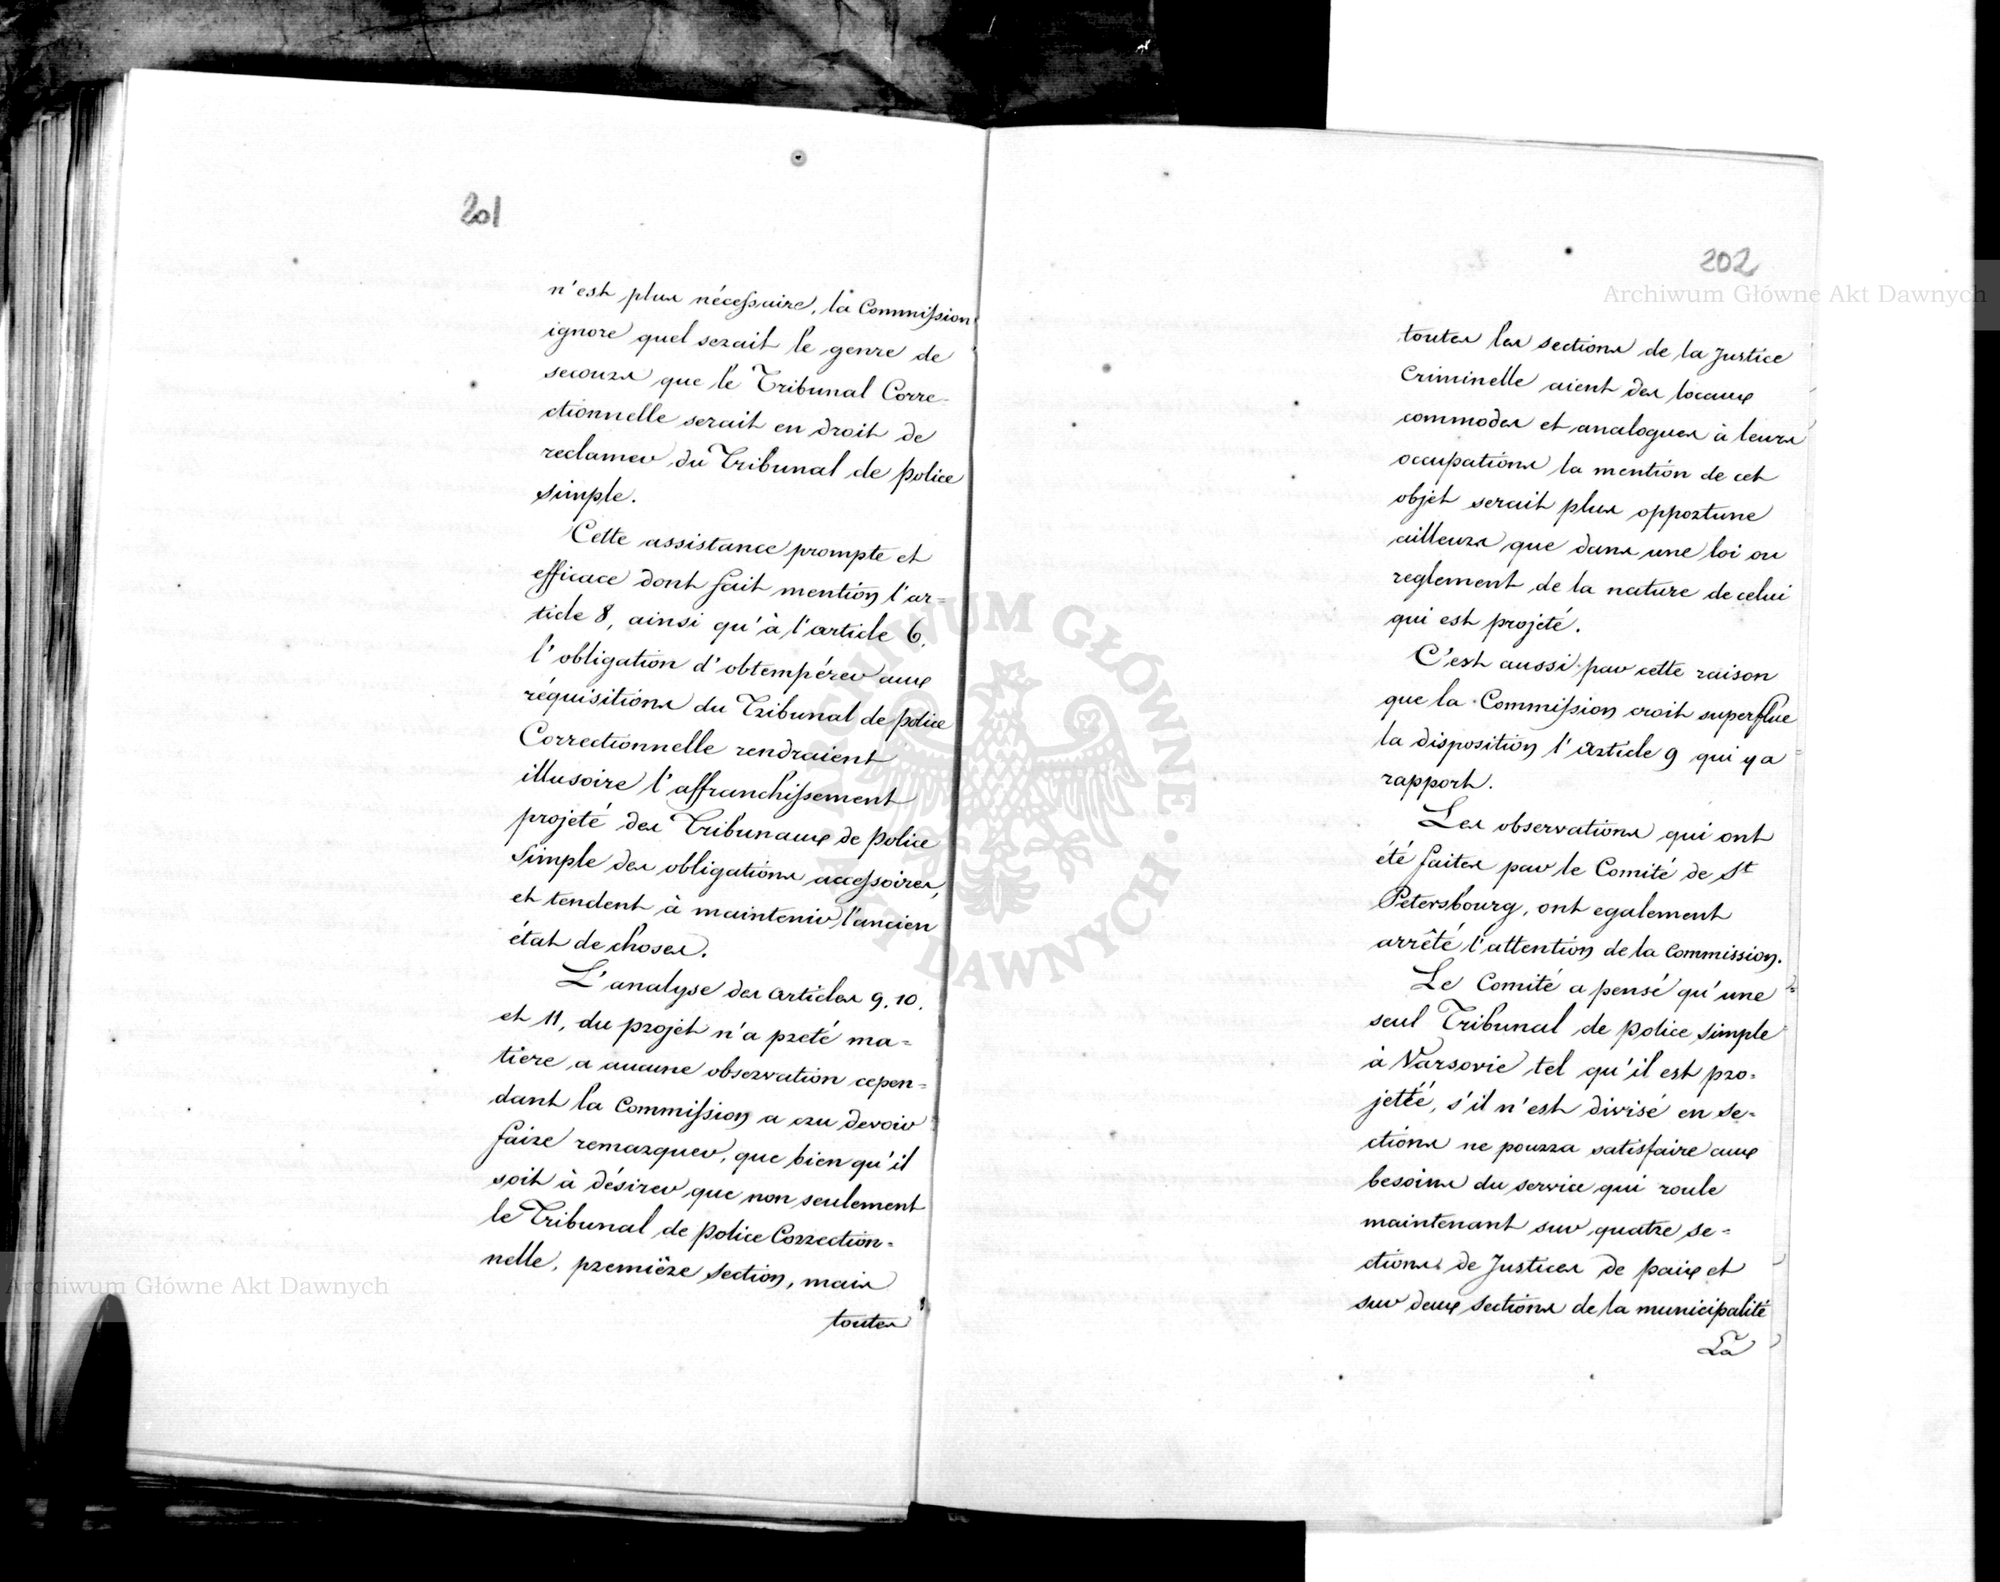 201
n'est plus nécessaire, la Commission
ignore quel serait le genre de
secours que le Tribunal Corre-
ctionnelle serait en droit de
reclamer du Tribunal de police
simple.
Cette assistance prompte et
efficace dont fait mention l'ar=
ticle 8, ainsi qu'à l'article 6.
l'obligation d'obtempérer aux
réquisitions du Tribunal de police
Correctionnelle rendraient
illusoire l'affranchissement
projeté des Tribunaux de police
simple des obligations accessoires,
et tendent à maintenir l'ancien
état de choses.
L'analyse des articles 9. 10.
et 11, du projet n'a preté ma=
tiere a aucune observation cepen=
dant la Commission a cru devoir
faire remarquer, que bien qu'il
soit à désirer que non seulement
le Tribunal de police Correction=
nelle, première section, mais
toutes
202
toutes les sections de la Justice
Criminelle aient des locaux
commodes et analogues à leurs
occupations la mention de cet
objet serait plus opportune
ailleurs que dans une loi ou
reglement de la nature de celui
qui est projeté.
C'est aussi par cette raison
que la Commission croit superflue
la disposition l'article 9 qui y a
rapport.
Les observations qui ont
été faites par le Comité de St
Petersbourg, ont egalement
arrêté l'attention de la Commission.
Le Comité a pensé qu'une
seul Tribunal de police simple
à Varsovie tel qu'il est pro=
jetté, s'il n'est divisé en se=
ctions ne pourra satisfaire aux
besoins du service qui roule
maintenant sur quatre se=
ctions de Justices de paix et
sur deux sections de la municipalité
La
Archiwum Główne Akt Dawnych
Archiwum Główne Akt Dawnych
ARCHIWUM GŁÓWNE AKT DAWNYCH